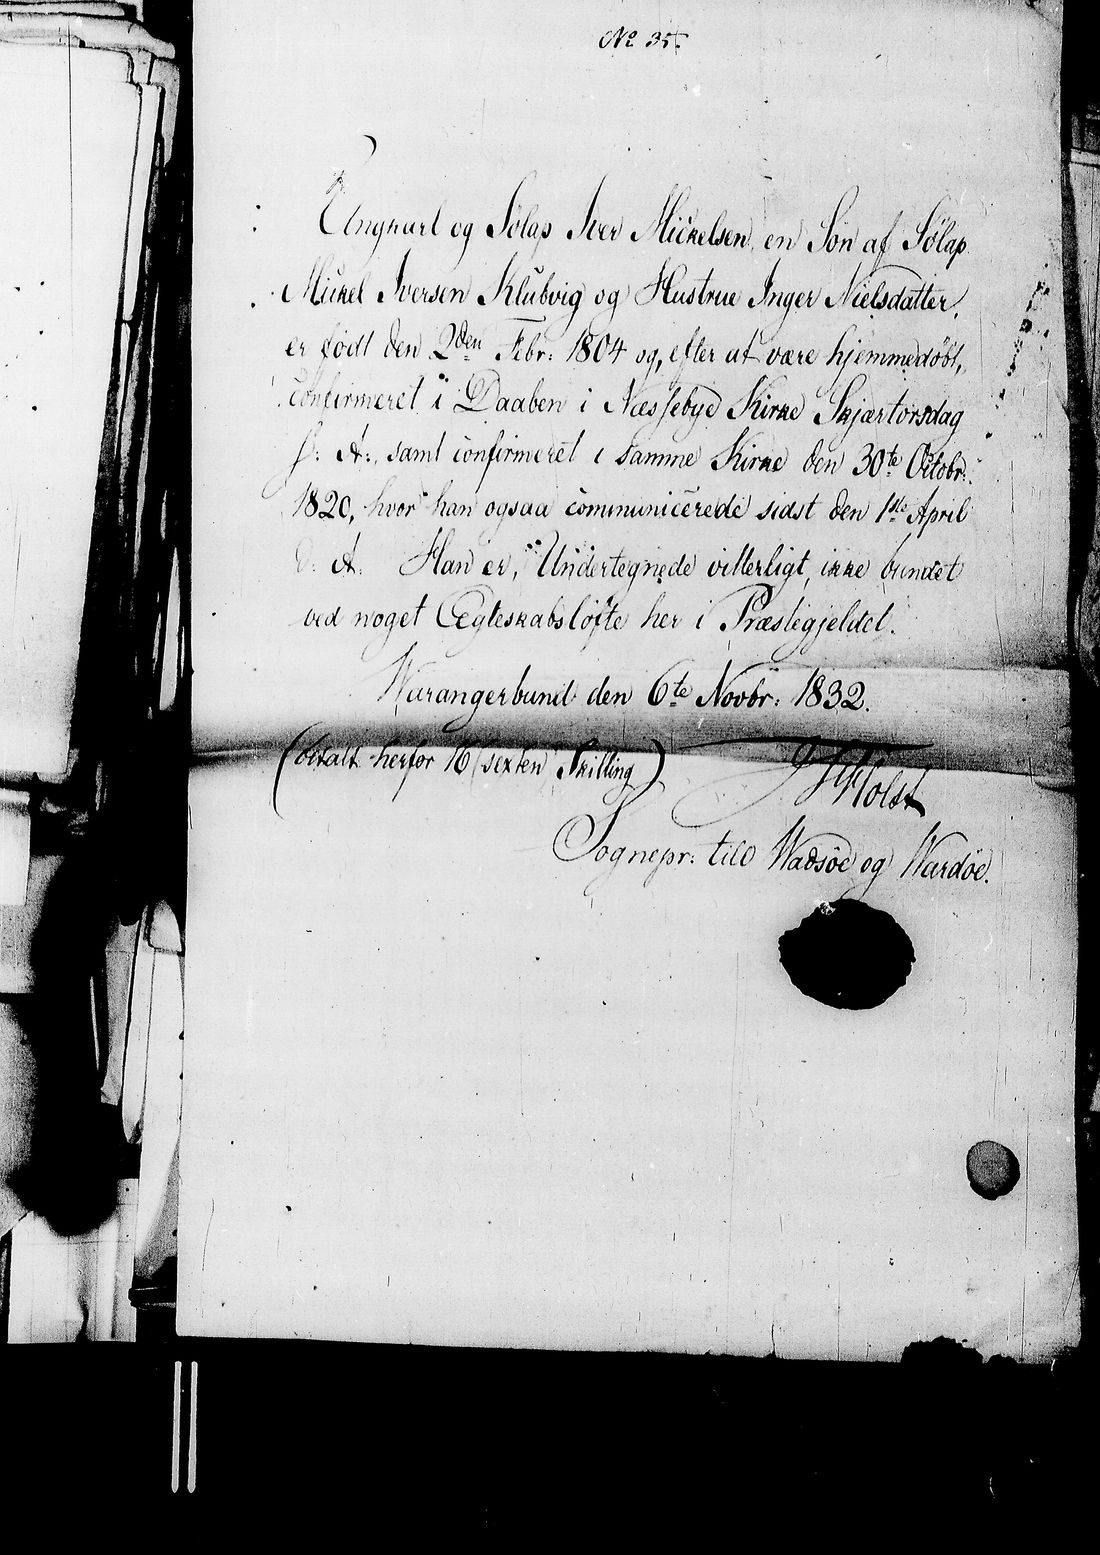 No 35.
Ungkarl og Sölap Iver Mickelsen, en Sön af Sölap
Mickel Iversen Klubvig og Hustrue Inger Nielsdatter,
er födt den 2den Febr: 1804 og, efter at være hjemmedöbt,
confirmeret i Daaben i Næssebye Kirke Skjærtorsdag
s: A:, samt confirmeret i samme Kirke den 30te Octobr:
1820, hvor han ogsaa communicerede sidst den 1ste April
d: A: Han er, Undertegnede vitterligt, ikke bundet
ved noget Ægteskabslöfte her i Præstegjeldet.
Warangerbund den 6te Novbr: 1832.
(betalt herfor 16 (sexten) Skilling)
Holst
Sognepr: till Wadsöe og Wardöe.